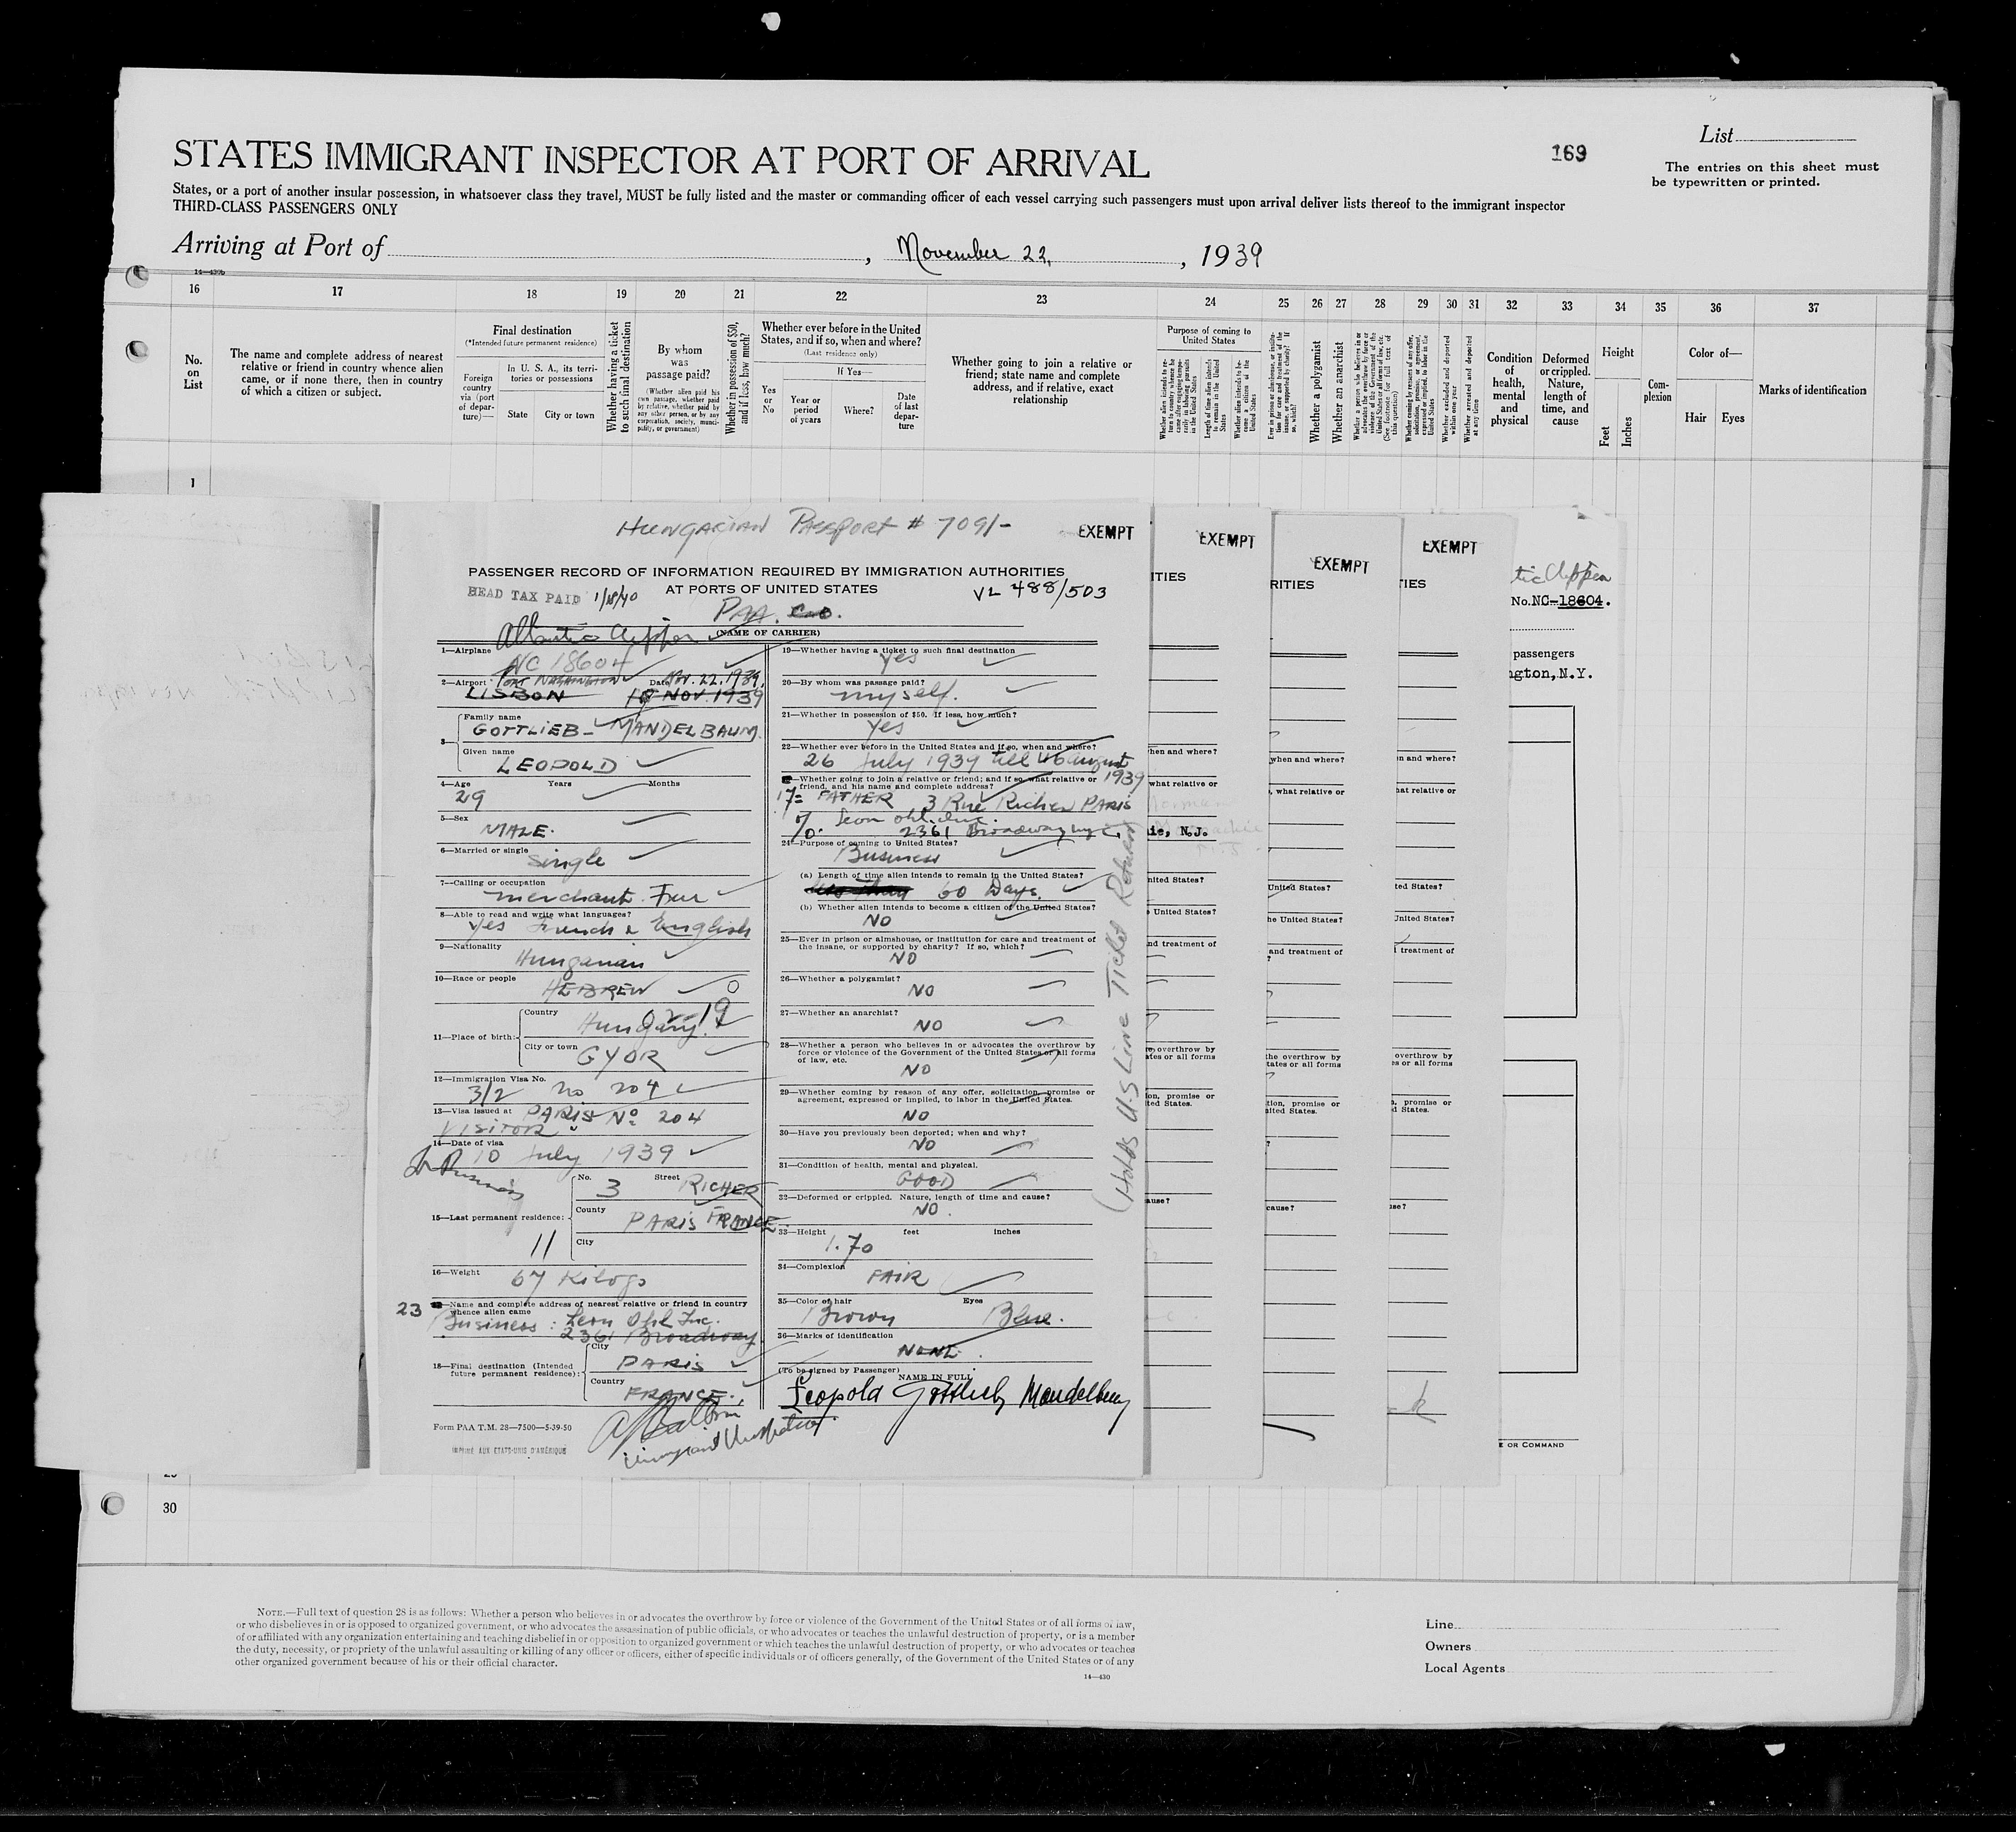 List
169
The entries on this sheet must
be typewritten or printed.
STATES IMMIGRANT INSPECTOR AT PORT OF ARRIVAL
States, or a port of another insular possession, in whatsoever class they travel, MUST be fully listed and the master or commanding officer of each vessel carrying such passengers must upon arrival deliver lists thereof to the immigrant inspector
THIRD-CLASS PASSENGERS ONLY
Arriving at Port of , November 22, , 1939
16 17 18 19 20 21 22 23 24 25 26 27 28 29 30 31 32 33 34 35 36 37
No.
on
List
The name and complete address of nearest
relative or friend in country whence alien
came, or if none there, then in country
of which a citizen or subject.
Final destination
(*Intended future permanent residence)
Foreign
country
via (port
of depar-
ture)—
In U. S. A., its terri-
tories or possessions
State City or town
Whether having a ticket
to such final destination
By whom
was
passage paid?
(Whether alien paid his
own passage, whether paid
by relative, whether paid by
any other person, or by any
corporation, society, munici-
pality, or government)
Whether in possession of $50,
and if less, how much?
Whether ever before in the United
States, and if so, when and where?
(Last residence only)
Yes
or
No
If Yes—
Year or
period
of years
Where?
Date
of last
depar-
ture
Whether going to join a relative or
friend; state name and complete
address, and if relative, exact
relationship
Purpose of coming to
United States
Length of time alien intends
to remain in the United
States
Whether alien intends to be-
come a citizen of the
United States
Whether a polygamist
Whether an anarchist
Whether excluded and deported
within one year
Whether arrested and deported
at any time
Condition
of
health,
mental
and
physical
Deformed
or crippled.
Nature,
length of
time, and
cause
Height
Feet
Inches
Com-
plexion
Color of—
Hair Eyes
Marks of identification
1
HUNGARIAN PASSPORT # 709/-
EXEMPT
PASSENGER RECORD OF INFORMATION REQUIRED BY IMMIGRATION AUTHORITIES
AT PORTS OF UNITED STATES
HEAD TAX PAID 1/18/40
VL 488/503
PAA. Co.
Atlantic Clipper (NAME OF CARRIER)
1—Airplane NC 18604
2—Airport PORT WASHINGTON Date Nov. 22. 1939.
LISBON NOV. 1939
3— Family name
GOTTLIEB - MANDELBAUM.
Given name
LEOPOLD
4—Age Years Months
29
5—Sex
MALE.
6—Married or single single
7—Calling or occupation
merchant Fur
8—Able to read and write what languages?
Yes French & English
9—Nationality
Hungarian
10—Race or people
HEBREW
11—Place of birth: Country Hungary.
City or town GYOR
12—Immigration Visa No.
3/2 No. 204
13—Visa issued at PARIS No 204
VISITOR
14—Date of visa
10 July 1939
15—Last permanent residence: No. 3 Street RICHER
County PARIS FRANCE
City
11
16—Weight 67 Kilogs
23 —Name and complete address of nearest relative or friend in country
whence alien came
Business : Leon Ohl Inc.
2361 Broadway
18—Final destination (Intended
future permanent residence): City PARIS
Country FRANCE.
Form PAA T.M. 28—7500—5-39-50
IMPRIMÉ AUX ETATS-UNIS D'AMÉRIQUE
19—Whether having a ticket to such final destination
yes
20—By whom was passage paid?
myself.
21—Whether in possession of $50. If less, how much?
yes
22—Whether ever before in the United States and if so, when and where?
26 July 1939 till 16 August 1939
—Whether going to join a relative or friend; and if so, what relative or
friend, and his name and complete address?
17= FATHER 3 Rue Richer PARIS
% Leon Ohl Inc.
2361 Broadway
24—Purpose of coming to United States?
Business
(a) Length of time alien intends to remain in the United States?
60 Days.
(b) Whether alien intends to become a citizen of the United States?
NO
25—Ever in prison or almshouse, or institution for care and treatment of
the insane, or supported by charity? If so, which?
NO
26—Whether a polygamist?
NO
27—Whether an anarchist?
NO
28—Whether a person who believes in or advocates the overthrow by
force or violence of the Government of the United States or all forms
of law, etc.
NO
29—Whether coming by reason of any offer, solicitation, promise or
agreement, expressed or implied, to labor in the United States.
NO
30—Have you previously been deported; when and why?
NO
31—Condition of health, mental and physical.
GOOD
32—Deformed or crippled. Nature, length of time and cause?
NO.
33—Height feet inches
1.70
34—Complexion
FAIR
35—Color of hair Eyes
Brown Blue.
36—Marks of identification
NONE.
(To be signed by Passenger) NAME IN FULL
Leopold Gottlieb Mandelbaum
(Holds U.S Line Ticket Return)
EXEMPT
EXEMPT
EXEMPT
No. NC-18604.
passengers
ngton, N.Y.
ie, N.J.
E OR COMMAND
30
NOTE.—Full text of question 28 is as follows: Whether a person who believes in or advocates the overthrow by force or violence of the Government of the United States or of all forms of law,
or who disbelieves in or is opposed to organized government, or who advocates the assassination of public officials, or who advocates or teaches the unlawful destruction of property, or is a member
of or affiliated with any organization entertaining and teaching disbelief in or opposition to organized government or which teaches the unlawful destruction of property, or who advocates or teaches
the duty, necessity, or propriety of the unlawful assaulting or killing of any officer or officers, either of specific individuals or of officers generally, of the Government of the United States or of any
other organized government because of his or their official character.
14—430
Line
Owners
Local Agents